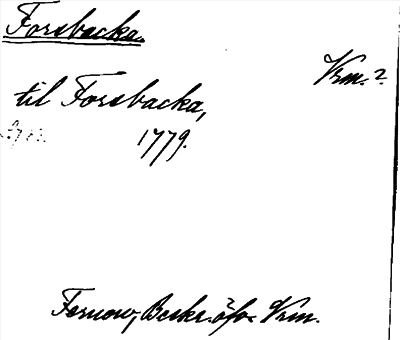 Forsbacka.
Vrm.?
til Forsbacka,
1779.
Fernow, Beskr. öfv. Vrm.